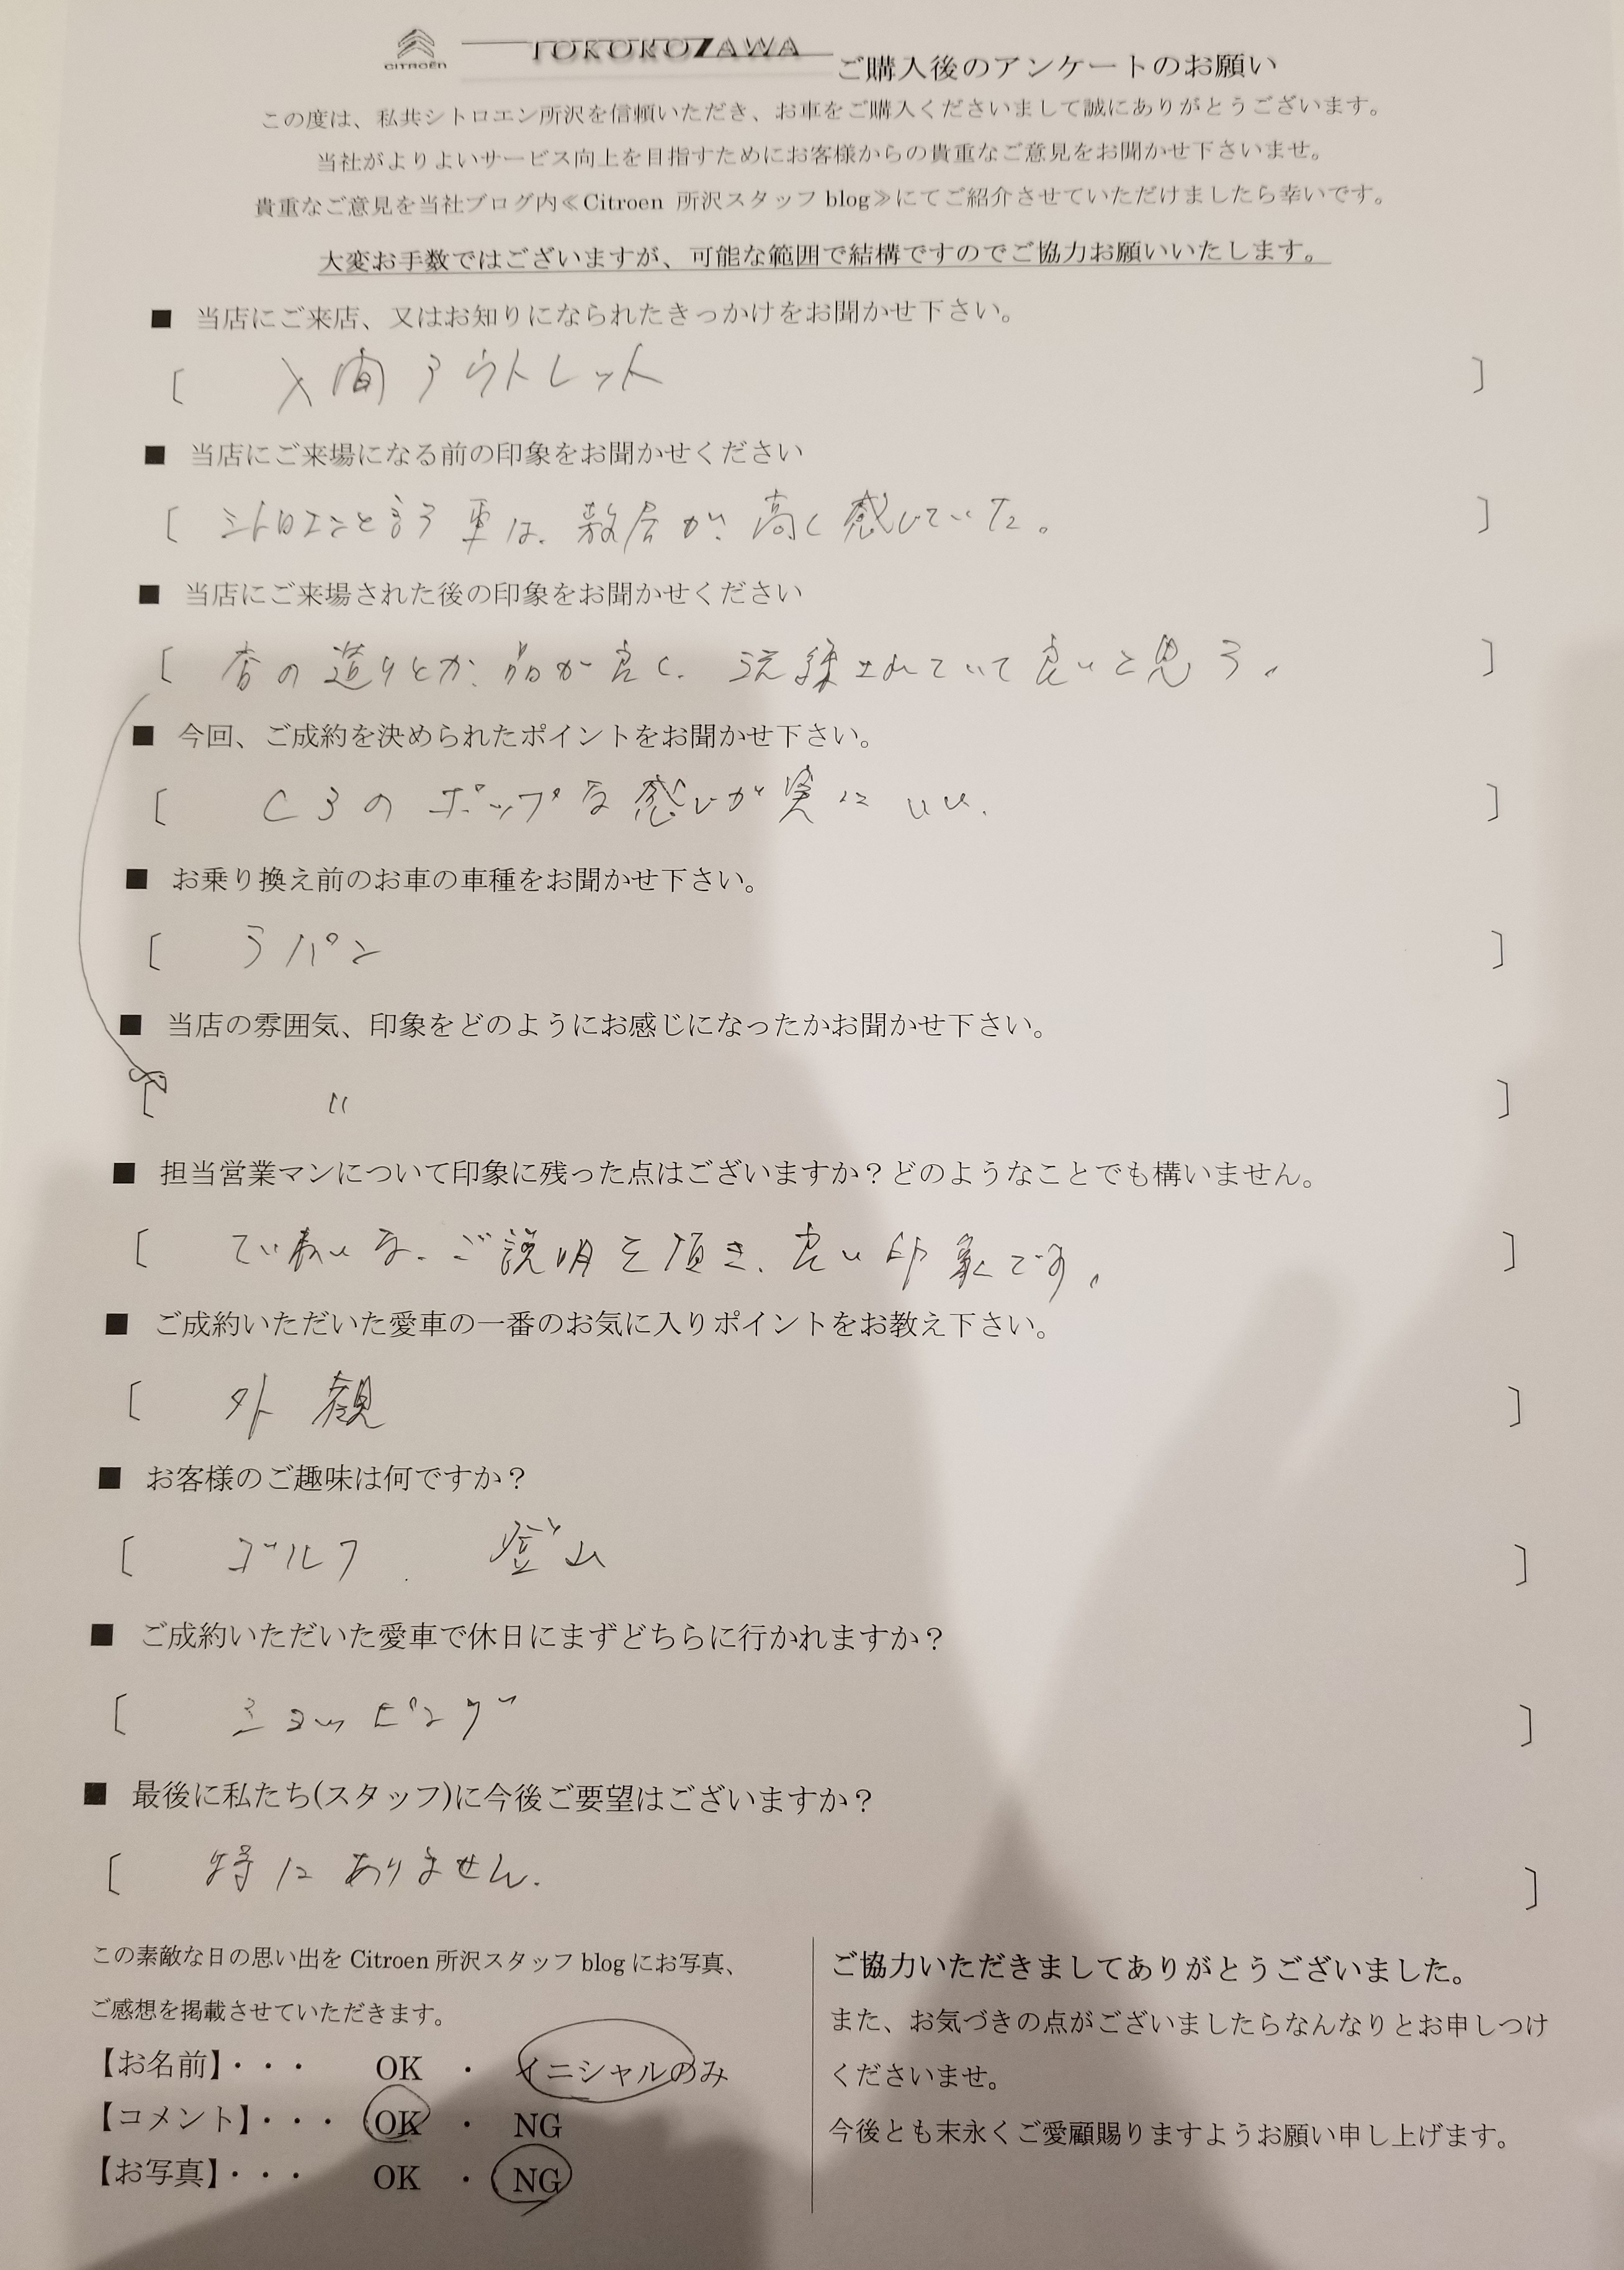 CITROËN
TOKOROZAWA ご購入後のアンケートのお願い
この度は、私共シトロエン所沢を信頼いただき、お車をご購入くださいまして誠にありがとうございます。
当社がよりよいサービス向上を目指すためにお客様からの貴重なご意見をお聞かせ下さいませ。
貴重なご意見を当社ブログ内≪Citroen 所沢スタッフ blog≫にてご紹介させていただけましたら幸いです。
大変お手数ではございますが、可能な範囲で結構ですのでご協力お願いいたします。
■ 当店にご来店、又はお知りになられたきっかけをお聞かせ下さい。
〔 入間アウトレット 〕
■ 当店にご来場になる前の印象をお聞かせください
〔 シトロエンと言う車は、敷居が高く感じていた。 〕
■ 当店にご来場された後の印象をお聞かせください
〔 店の造りとか、品が良く、洗練されていて良いと思う。 〕
■ 今回、ご成約を決められたポイントをお聞かせ下さい。
〔 C3のポップな感じが実にいい。 〕
■ お乗り換え前のお車の車種をお聞かせ下さい。
〔 ラパン 〕
■ 当店の雰囲気、印象をどのようにお感じになったかお聞かせ下さい。
〔 〃 〕
■ 担当営業マンについて印象に残った点はございますか？どのようなことでも構いません。
〔 ていねいな、ご説明を頂き、良い印象です。 〕
■ ご成約いただいた愛車の一番のお気に入りポイントをお教え下さい。
〔 外観 〕
■ お客様のご趣味は何ですか？
〔 ゴルフ、登山 〕
■ ご成約いただいた愛車で休日にまずどちらに行かれますか？
〔 ショッピング 〕
■ 最後に私たち(スタッフ)に今後ご要望はございますか？
〔 特にありません。 〕
この素敵な日の思い出を Citroen 所沢スタッフ blog にお写真、
ご感想を掲載させていただきます。
【お名前】・・・ OK ・ イニシャルのみ
【コメント】・・・ OK ・ NG
【お写真】・・・ OK ・ NG
ご協力いただきましてありがとうございました。
また、お気づきの点がございましたらなんなりとお申しつけ
くださいませ。
今後とも末永くご愛顧賜りますようお願い申し上げます。